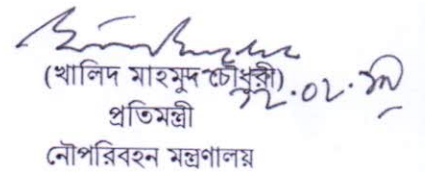 (খালিদ মাহমুদ চৌধুরী)
প্রতিমন্ত্রী
নৌপরিবহন মন্ত্রণালয়